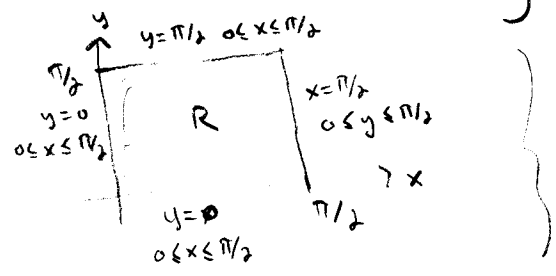 y
y=π/2 0≤x≤π/2
π/2
y=0
0≤x≤π/2
R
x=π/2
0≤y≤π/2
x
π/2
y=0
0≤x≤π/2